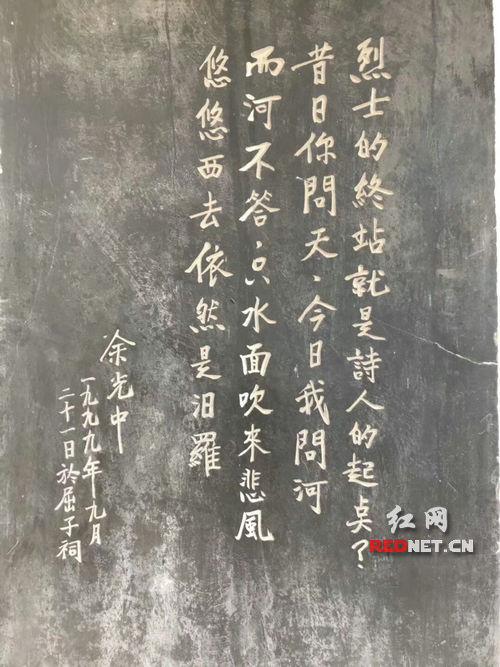 烈士的終站就是詩人的起点？
昔日你問天，今日我問河
而河不答，只水面吹來悲風
悠悠西去依然是汨羅
余光中
一九九九年九月
二十一日於屈子祠
红网
REDNET.CN